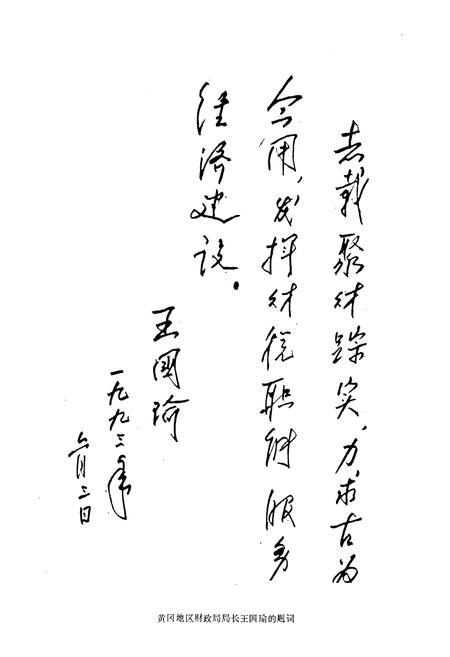 志载聚财踪实,力求古为
今用,发挥财税职能 服务
经济建设。
王国瑜
一九九三年
六月三日
黄冈地区财政局局长王国瑜的题词